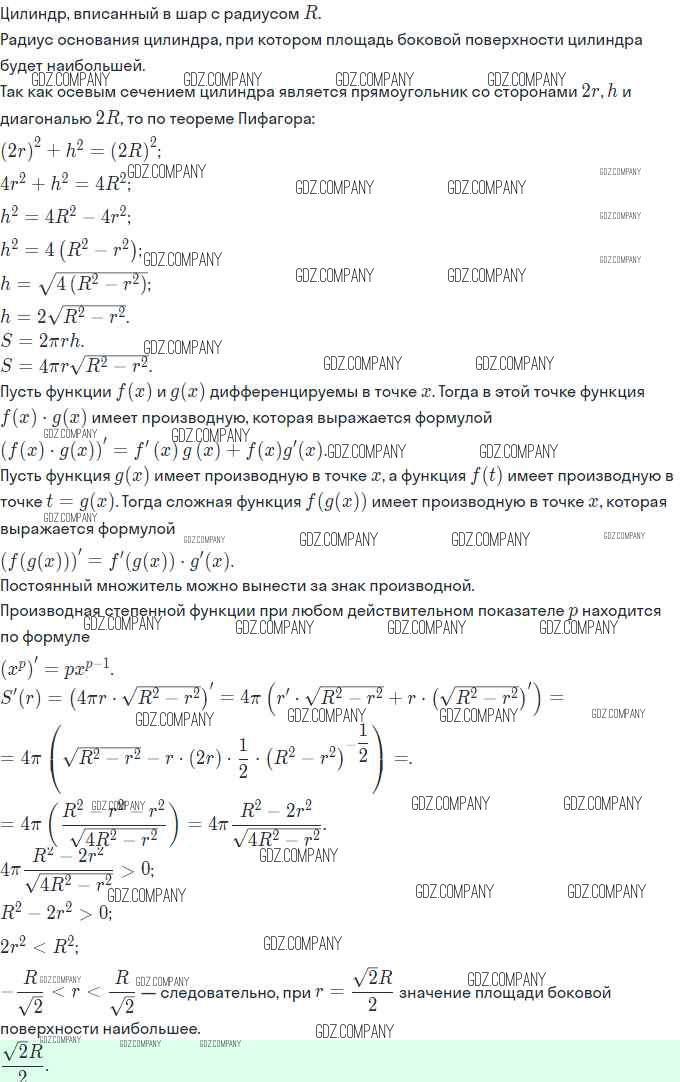 Цилиндр, вписанный в шар с радиусом R.
Радиус основания цилиндра, при котором площадь боковой поверхности цилиндра
будет наибольшей.
GDZ.COMPANY GDZ.COMPANY GDZ.COMPANY GDZ.COMPANY
Так как осевым сечением цилиндра является прямоугольник со сторонами 2r, h и
диагональю 2R, то по теореме Пифагора:
(2r)² + h² = (2R)²;
GDZ.COMPANY GDZ.COMPANY
4r² + h² = 4R²;
GDZ.COMPANY GDZ.COMPANY
h² = 4R² − 4r²;
GDZ.COMPANY
h² = 4 (R² − r²);
GDZ.COMPANY GDZ.COMPANY
h = √(4 (R² − r²));
GDZ.COMPANY GDZ.COMPANY
h = 2√(R² − r²).
S = 2πrh.
GDZ.COMPANY
S = 4πr√(R² − r²).
GDZ.COMPANY GDZ.COMPANY
Пусть функции f(x) и g(x) дифференцируемы в точке x. Тогда в этой точке функция
f(x) · g(x) имеет производную, которая выражается формулой
GDZ.COMPANY GDZ.COMPANY
(f(x) · g(x))′ = f′ (x) g (x) + f(x)g′(x).
GDZ.COMPANY GDZ.COMPANY
Пусть функция g(x) имеет производную в точке x, а функция f(t) имеет производную в
точке t = g(x). Тогда сложная функция f(g(x)) имеет производную в точке x, которая
GDZ.COMPANY
выражается формулой
GDZ.COMPANY GDZ.COMPANY GDZ.COMPANY GDZ.COMPANY
(f(g(x)))′ = f′(g(x)) · g′(x).
Постоянный множитель можно вынести за знак производной.
Производная степенной функции при любом действительном показателе p находится
GDZ.COMPANY GDZ.COMPANY GDZ.COMPANY GDZ.COMPANY
по формуле
(xᵖ)′ = pxᵖ⁻¹.
S′(r) = (4πr · √(R² − r²))′ = 4π (r′ · √(R² − r²) + r · (√(R² − r²))′) =
GDZ.COMPANY GDZ.COMPANY GDZ.COMPANY GDZ.COMPANY
= 4π (√(R² − r²) − r · (2r) · 1/2 · (R² − r²)^(−1/2)) =.
GDZ.COMPANY GDZ.COMPANY GDZ.COMPANY
= 4π ((R² − r² − r²)/√(4R² − r²)) = 4π (R² − 2r²)/√(4R² − r²).
GDZ.COMPANY
4π (R² − 2r²)/√(4R² − r²) > 0;
GDZ.COMPANY GDZ.COMPANY GDZ.COMPANY
R² − 2r² > 0;
2r² < R²;
GDZ.COMPANY
−R/√2 < r < R/√2 — следовательно, при r = √2R/2 значение площади боковой
GDZ.COMPANY GDZ.COMPANY GDZ.COMPANY
поверхности наибольшее.
GDZ.COMPANY
GDZ.COMPANY GDZ.COMPANY GDZ.COMPANY
√2R/2.